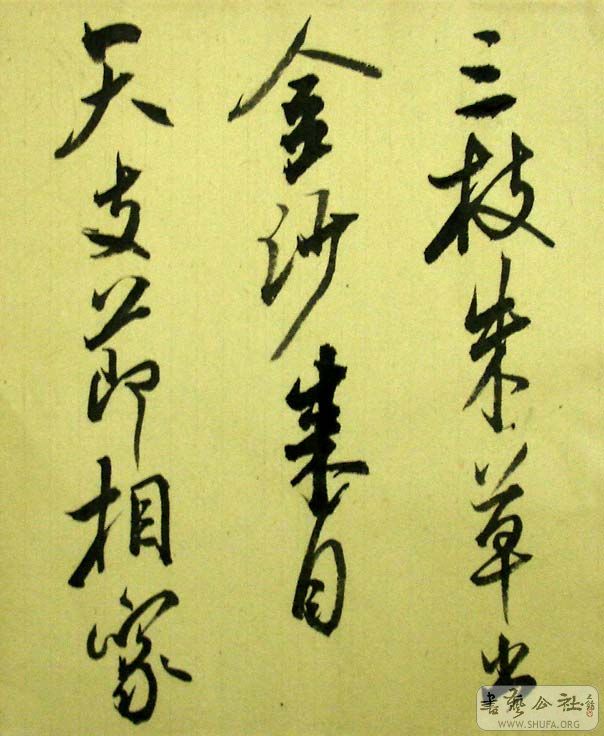 三枝朱草出
金沙來自
天支節相家
書藝公社
WWW.SHUFA.ORG